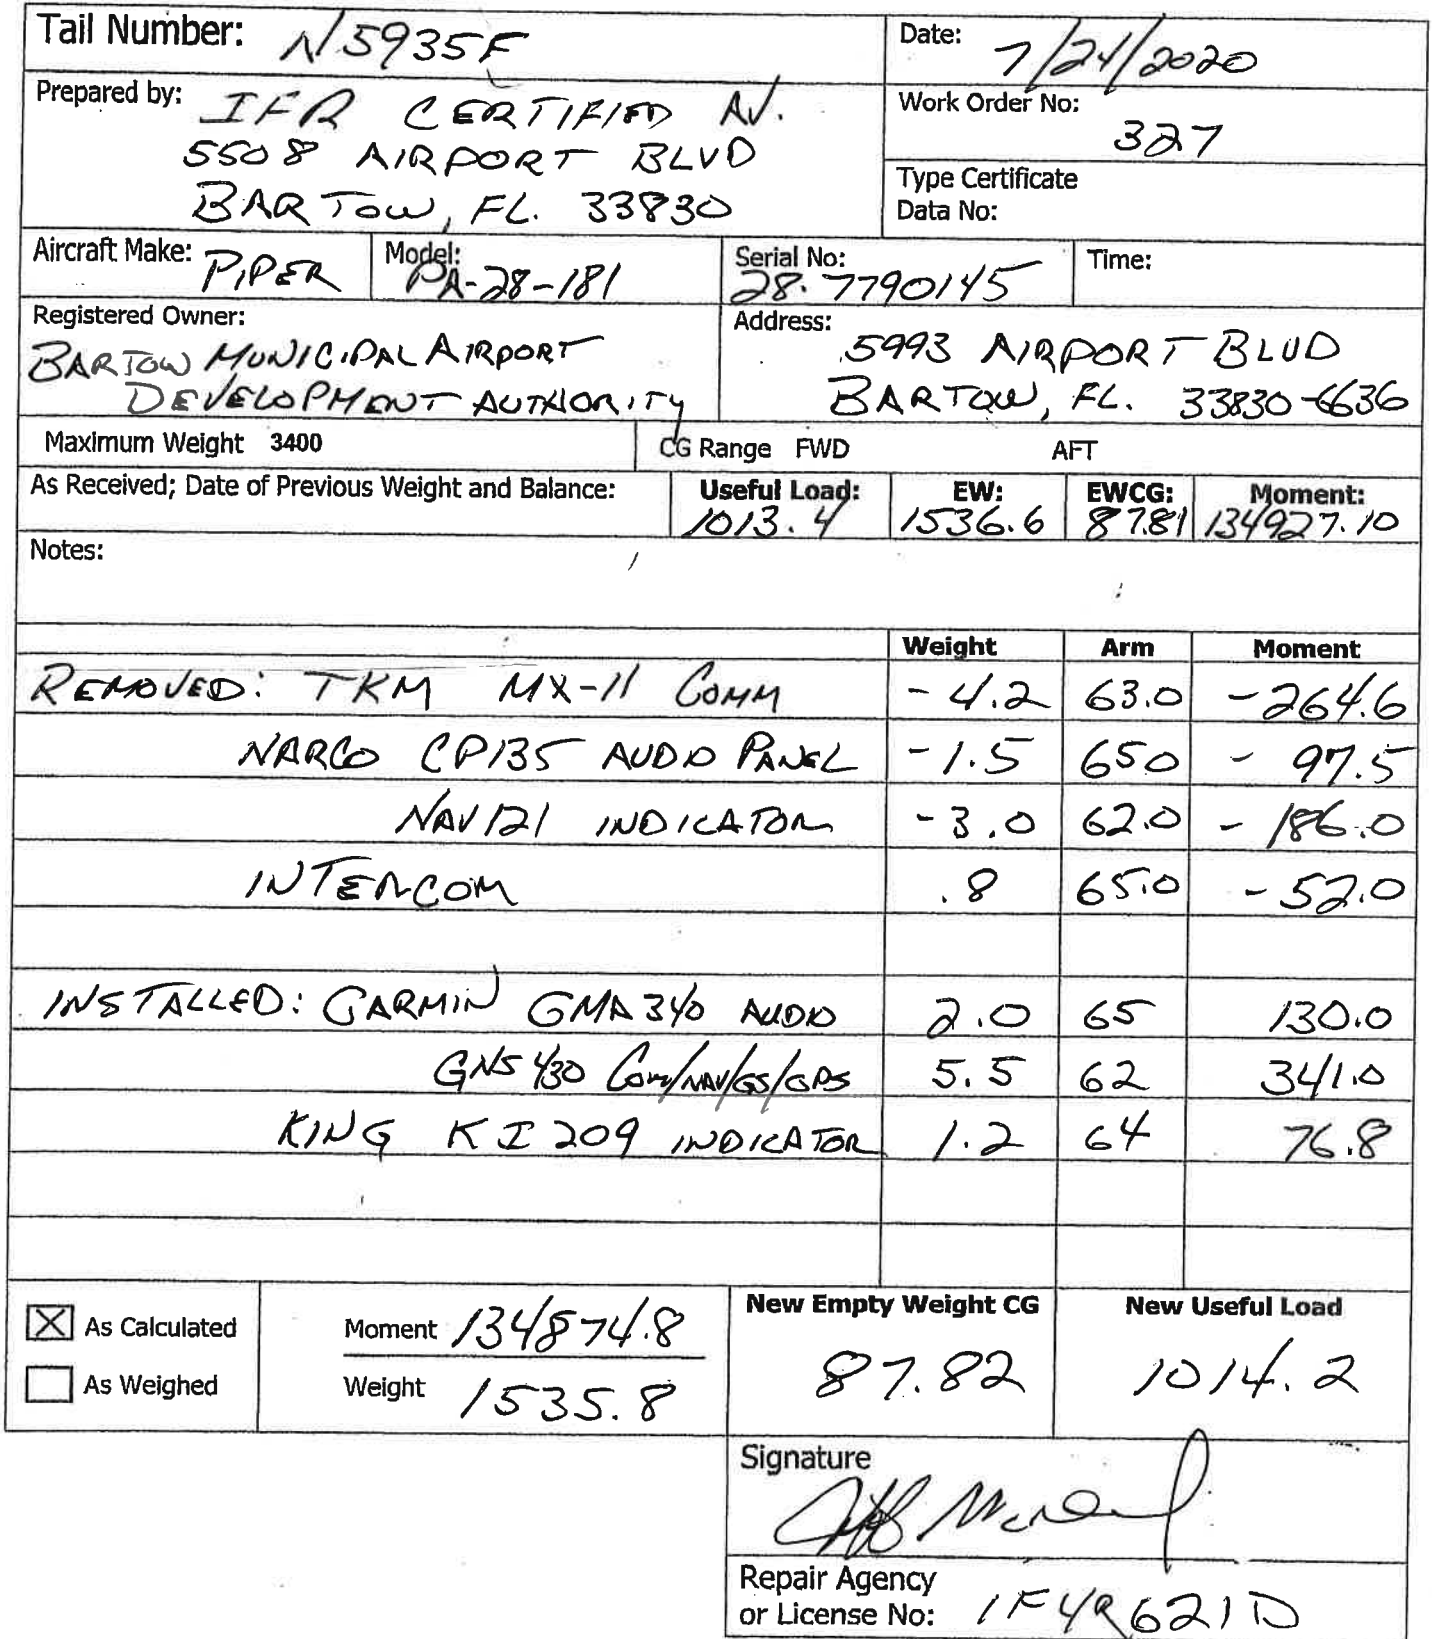 Tail Number: N5935F
Date: 7/24/2020
Prepared by: IFR CERTIFIED AV.
5508 AIRPORT BLVD
BARTOW, FL. 33830
Work Order No:
327
Type Certificate
Data No:
Aircraft Make: PIPER
Model: PA-28-181
Serial No: 28-7790145
Time:
Registered Owner:
BARTOW MUNICIPAL AIRPORT
DEVELOPMENT AUTHORITY
Address: 5993 AIRPORT BLVD
BARTOW, FL. 33830-6636
Maximum Weight 3400
CG Range FWD AFT
As Received; Date of Previous Weight and Balance:
Useful Load: 1013.4
EW: 1536.6
EWCG: 87.81
Moment: 134927.10
Notes:
Weight Arm Moment
REMOVED: TKM MX-11 COMM -4.2 63.0 -264.6
NARCO CP135 AUDIO PANEL -1.5 650 - 97.5
NAV121 INDICATOR -3.0 62.0 - 186.0
INTERCOM .8 65.0 -52.0
INSTALLED: GARMIN GMA 340 AUDIO 2.0 65 130.0
GNS 430 Com/NAV/GS/GPS 5.5 62 341.0
KING KI 209 INDICATOR 1.2 64 76.8
As Calculated
As Weighed
Moment 134874.8
Weight 1535.8
New Empty Weight CG
87.82
New Useful Load
1014.2
Signature
Repair Agency
or License No: 1F4R621D